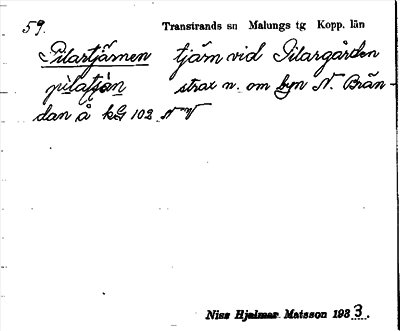 59. Transtrands sn Malungs tg Kopp. län
Pilartjärnen tjärn vid Pilargården
pilatjän strax n. om byn N. Brän-
dan å kG 102 NV
Niss Hjalmar Matsson 1933.